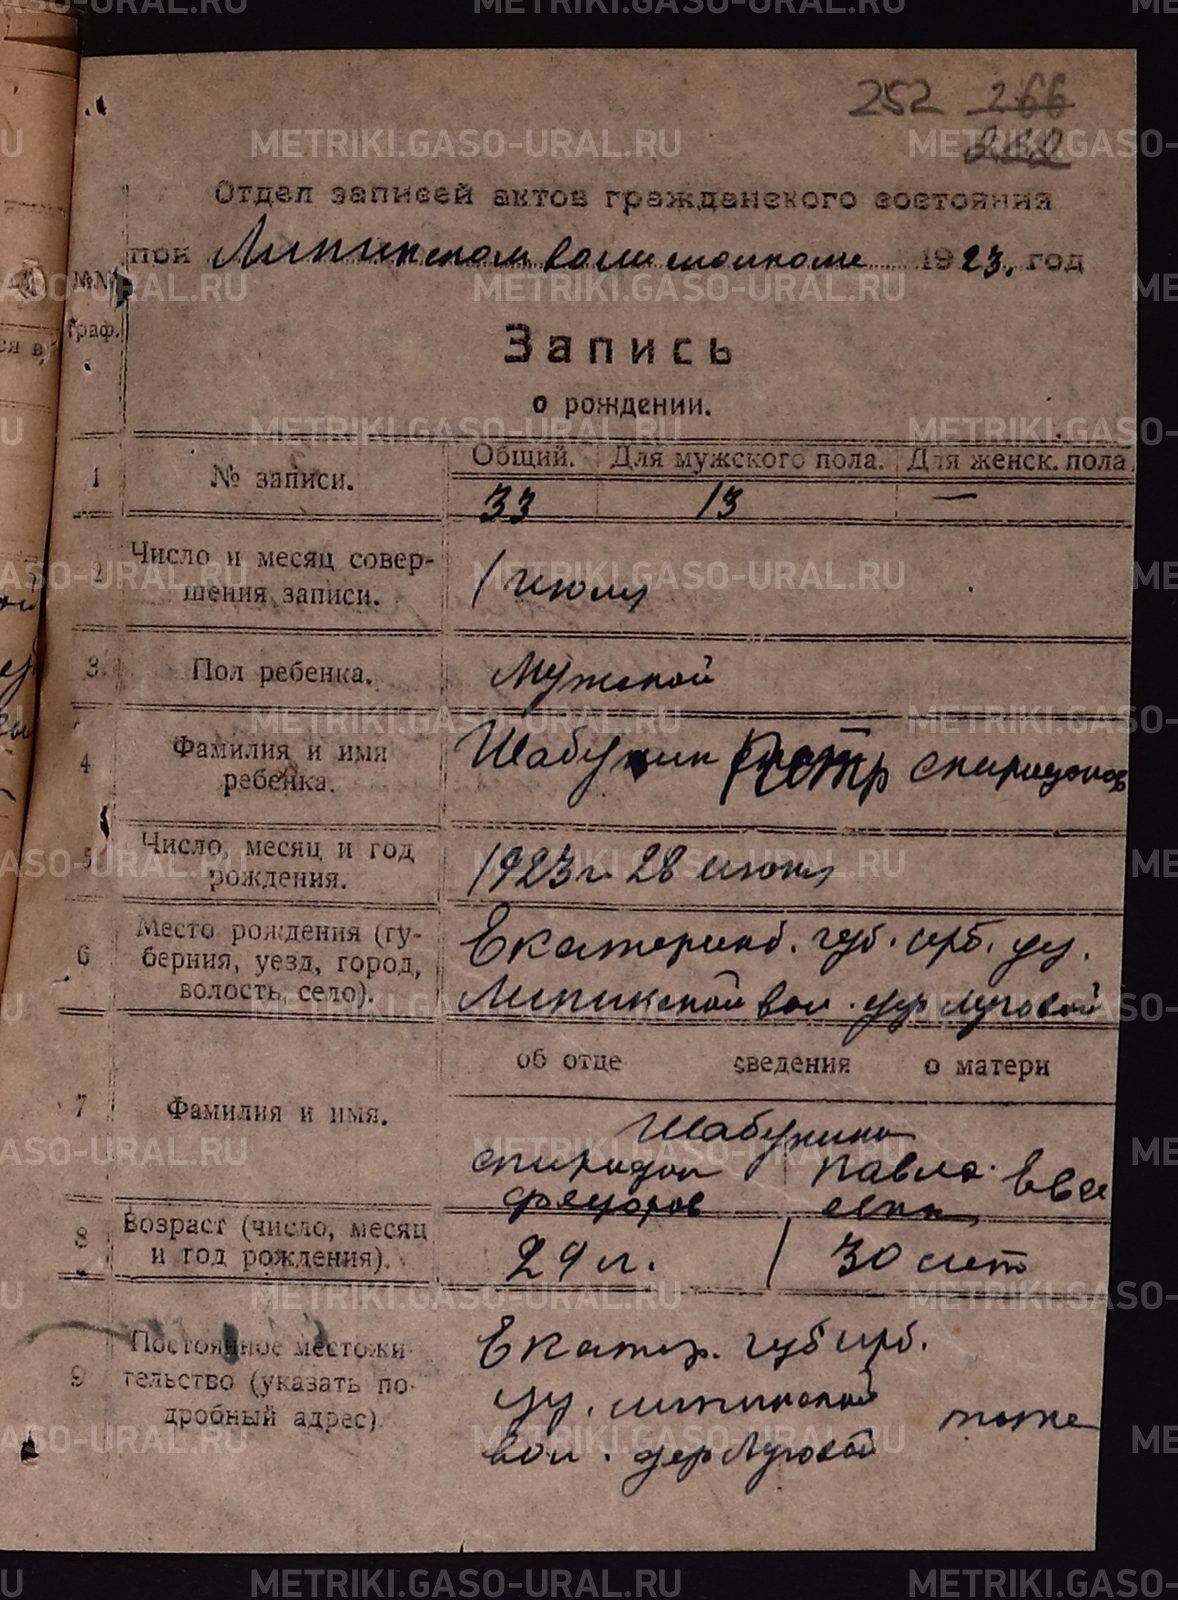 252 266
Отдел записей актов гражданского состояния
при Липинском волисполкоме 1923. год
№№
граф.
Запись
о рождении.
Общий. Для мужского пола. Для женск. пола.
1 № записи. 33 13 —
2 Число и месяц совер-
шения записи. 1 июля
3 Пол ребенка. Мужской
4 Фамилия и имя
ребенка. Шабунин Петр спиридонов
5 Число, месяц и год
рождения. 1923 г. 28 июня
6 Место рождения (гу-
берния, уезд, город,
волость, село). Екатеринб. губ. ирб. уу.
Липинской вол. дер Луговой
об отце сведения о матери
7 Фамилия и имя. Шабунины
спиридон Павла.
федоров
8 Возраст (число, месяц
и год рождения). 29 л. 30 лет
9 Постоянное местожи-
тельство (указать по-
дробный адрес). Екатер. губ ирб.
уу. липинской тоже
вол. дер Луговой
METRIKI.GASO-URAL.RU